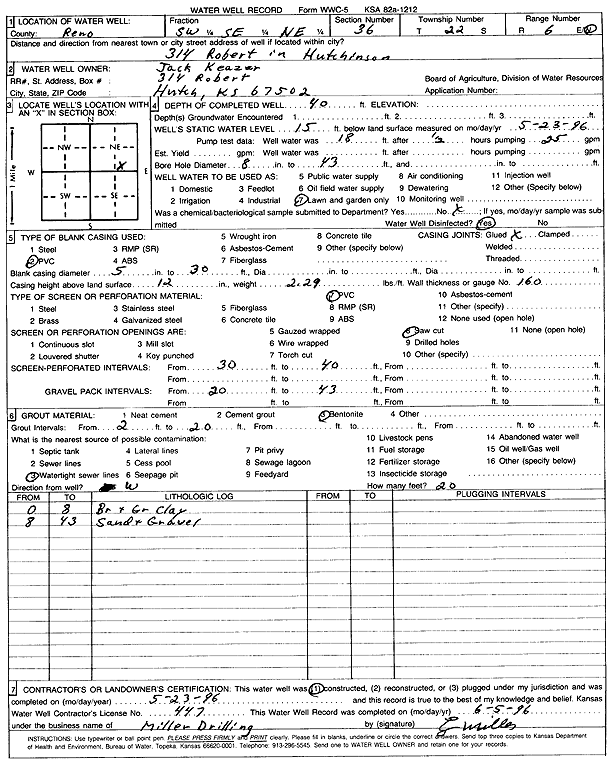 WATER WELL RECORD Form WWC-5 KSA 82a-1212
1 LOCATION OF WATER WELL: Fraction Section Number Township Number Range Number
County: Reno SW ¼ SE ¼ NE ¼ 36 T 22 S R 6 E/W
Distance and direction from nearest town or city street address of well if located within city?
314 Robert in Hutchinson
2 WATER WELL OWNER: Jack Keazer
RR#, St. Address, Box # : 314 Robert Board of Agriculture, Division of Water Resources
City, State, ZIP Code : Hutch, KS 67502 Application Number:
3 LOCATE WELL'S LOCATION WITH AN "X" IN SECTION BOX:
N
NW NE
W E
SW SE
S
1 Mile
X
4 DEPTH OF COMPLETED WELL 40 ft. ELEVATION:
Depth(s) Groundwater Encountered 1. ft. 2. ft. 3. ft.
WELL'S STATIC WATER LEVEL 15 ft. below land surface measured on mo/day/yr 5-23-96
Pump test data: Well water was 18 ft. after ½ hours pumping 25 gpm
Est. Yield gpm: Well water was ft. after hours pumping gpm
Bore Hole Diameter 8 in. to 43 ft., and in. to ft.
WELL WATER TO BE USED AS: 5 Public water supply 8 Air conditioning 11 Injection well
1 Domestic 3 Feedlot 6 Oil field water supply 9 Dewatering 12 Other (Specify below)
2 Irrigation 4 Industrial 7 Lawn and garden only 10 Monitoring well
Was a chemical/bacteriological sample submitted to Department? Yes No X ; If yes, mo/day/yr sample was submitted Water Well Disinfected? Yes No
5 TYPE OF BLANK CASING USED: 5 Wrought iron 8 Concrete tile CASING JOINTS: Glued X Clamped
1 Steel 3 RMP (SR) 6 Asbestos-Cement 9 Other (specify below) Welded
2 PVC 4 ABS 7 Fiberglass Threaded
Blank casing diameter 5 in. to 30 ft., Dia in. to ft., Dia in. to ft.
Casing height above land surface 12 in., weight 2.29 lbs./ft. Wall thickness or gauge No. 160
TYPE OF SCREEN OR PERFORATION MATERIAL: 7 PVC 10 Asbestos-cement
1 Steel 3 Stainless steel 5 Fiberglass 8 RMP (SR) 11 Other (specify)
2 Brass 4 Galvanized steel 6 Concrete tile 9 ABS 12 None used (open hole)
SCREEN OR PERFORATION OPENINGS ARE: 5 Gauzed wrapped 8 Saw cut 11 None (open hole)
1 Continuous slot 3 Mill slot 6 Wire wrapped 9 Drilled holes
2 Louvered shutter 4 Key punched 7 Torch cut 10 Other (specify)
SCREEN-PERFORATED INTERVALS: From 30 ft. to 40 ft., From ft. to ft.
From ft. to ft., From ft. to ft.
GRAVEL PACK INTERVALS: From 20 ft. to 43 ft., From ft. to ft.
From ft. to ft., From ft. to ft.
6 GROUT MATERIAL: 1 Neat cement 2 Cement grout 3 Bentonite 4 Other
Grout Intervals: From 2 ft. to 20 ft. From ft. to ft., From ft. to ft.
What is the nearest source of possible contamination: 10 Livestock pens 14 Abandoned water well
1 Septic tank 4 Lateral lines 7 Pit privy 11 Fuel storage 15 Oil well/Gas well
2 Sewer lines 5 Cess pool 8 Sewage lagoon 12 Fertilizer storage 16 Other (specify below)
3 Watertight sewer lines 6 Seepage pit 9 Feedyard 13 Insecticide storage
Direction from well? W How many feet? 20
FROM TO LITHOLOGIC LOG FROM TO PLUGGING INTERVALS
0 8 Br + Gr Clay
8 43 Sand + Gravel
7 CONTRACTOR'S OR LANDOWNER'S CERTIFICATION: This water well was (1) constructed, (2) reconstructed, or (3) plugged under my jurisdiction and was
completed on (mo/day/year) 5-23-96 and this record is true to the best of my knowledge and belief. Kansas
Water Well Contractor's License No. 447 This Water Well Record was completed on (mo/day/yr) 6-5-96
under the business name of Miller Drilling by (signature) E Miller
INSTRUCTIONS: Use typewriter or ball point pen. PLEASE PRESS FIRMLY and PRINT clearly. Please fill in blanks, underline or circle the correct answers. Send top three copies to Kansas Department
of Health and Environment, Bureau of Water, Topeka, Kansas 66620-0001. Telephone: 913-296-5545. Send one to WATER WELL OWNER and retain one for your records.